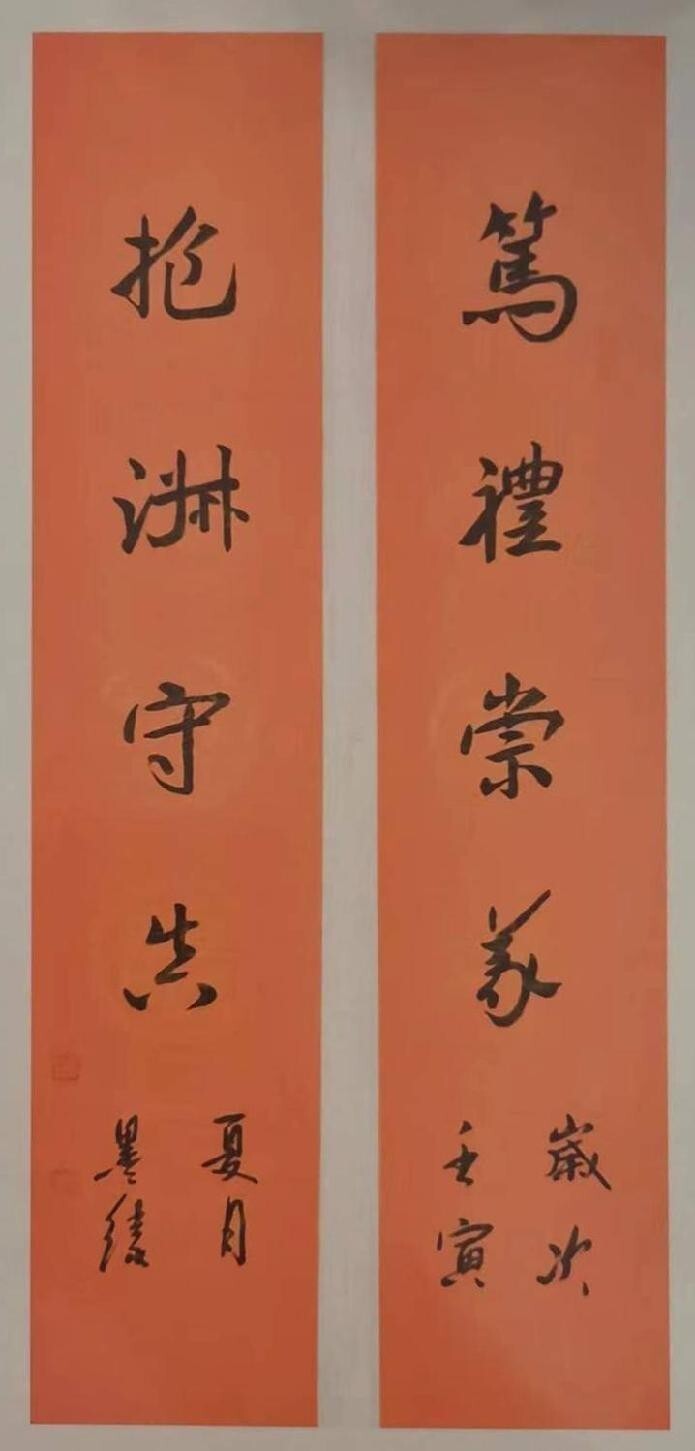 篤禮崇義
歲次
壬寅
抱淑守真
夏月
墨